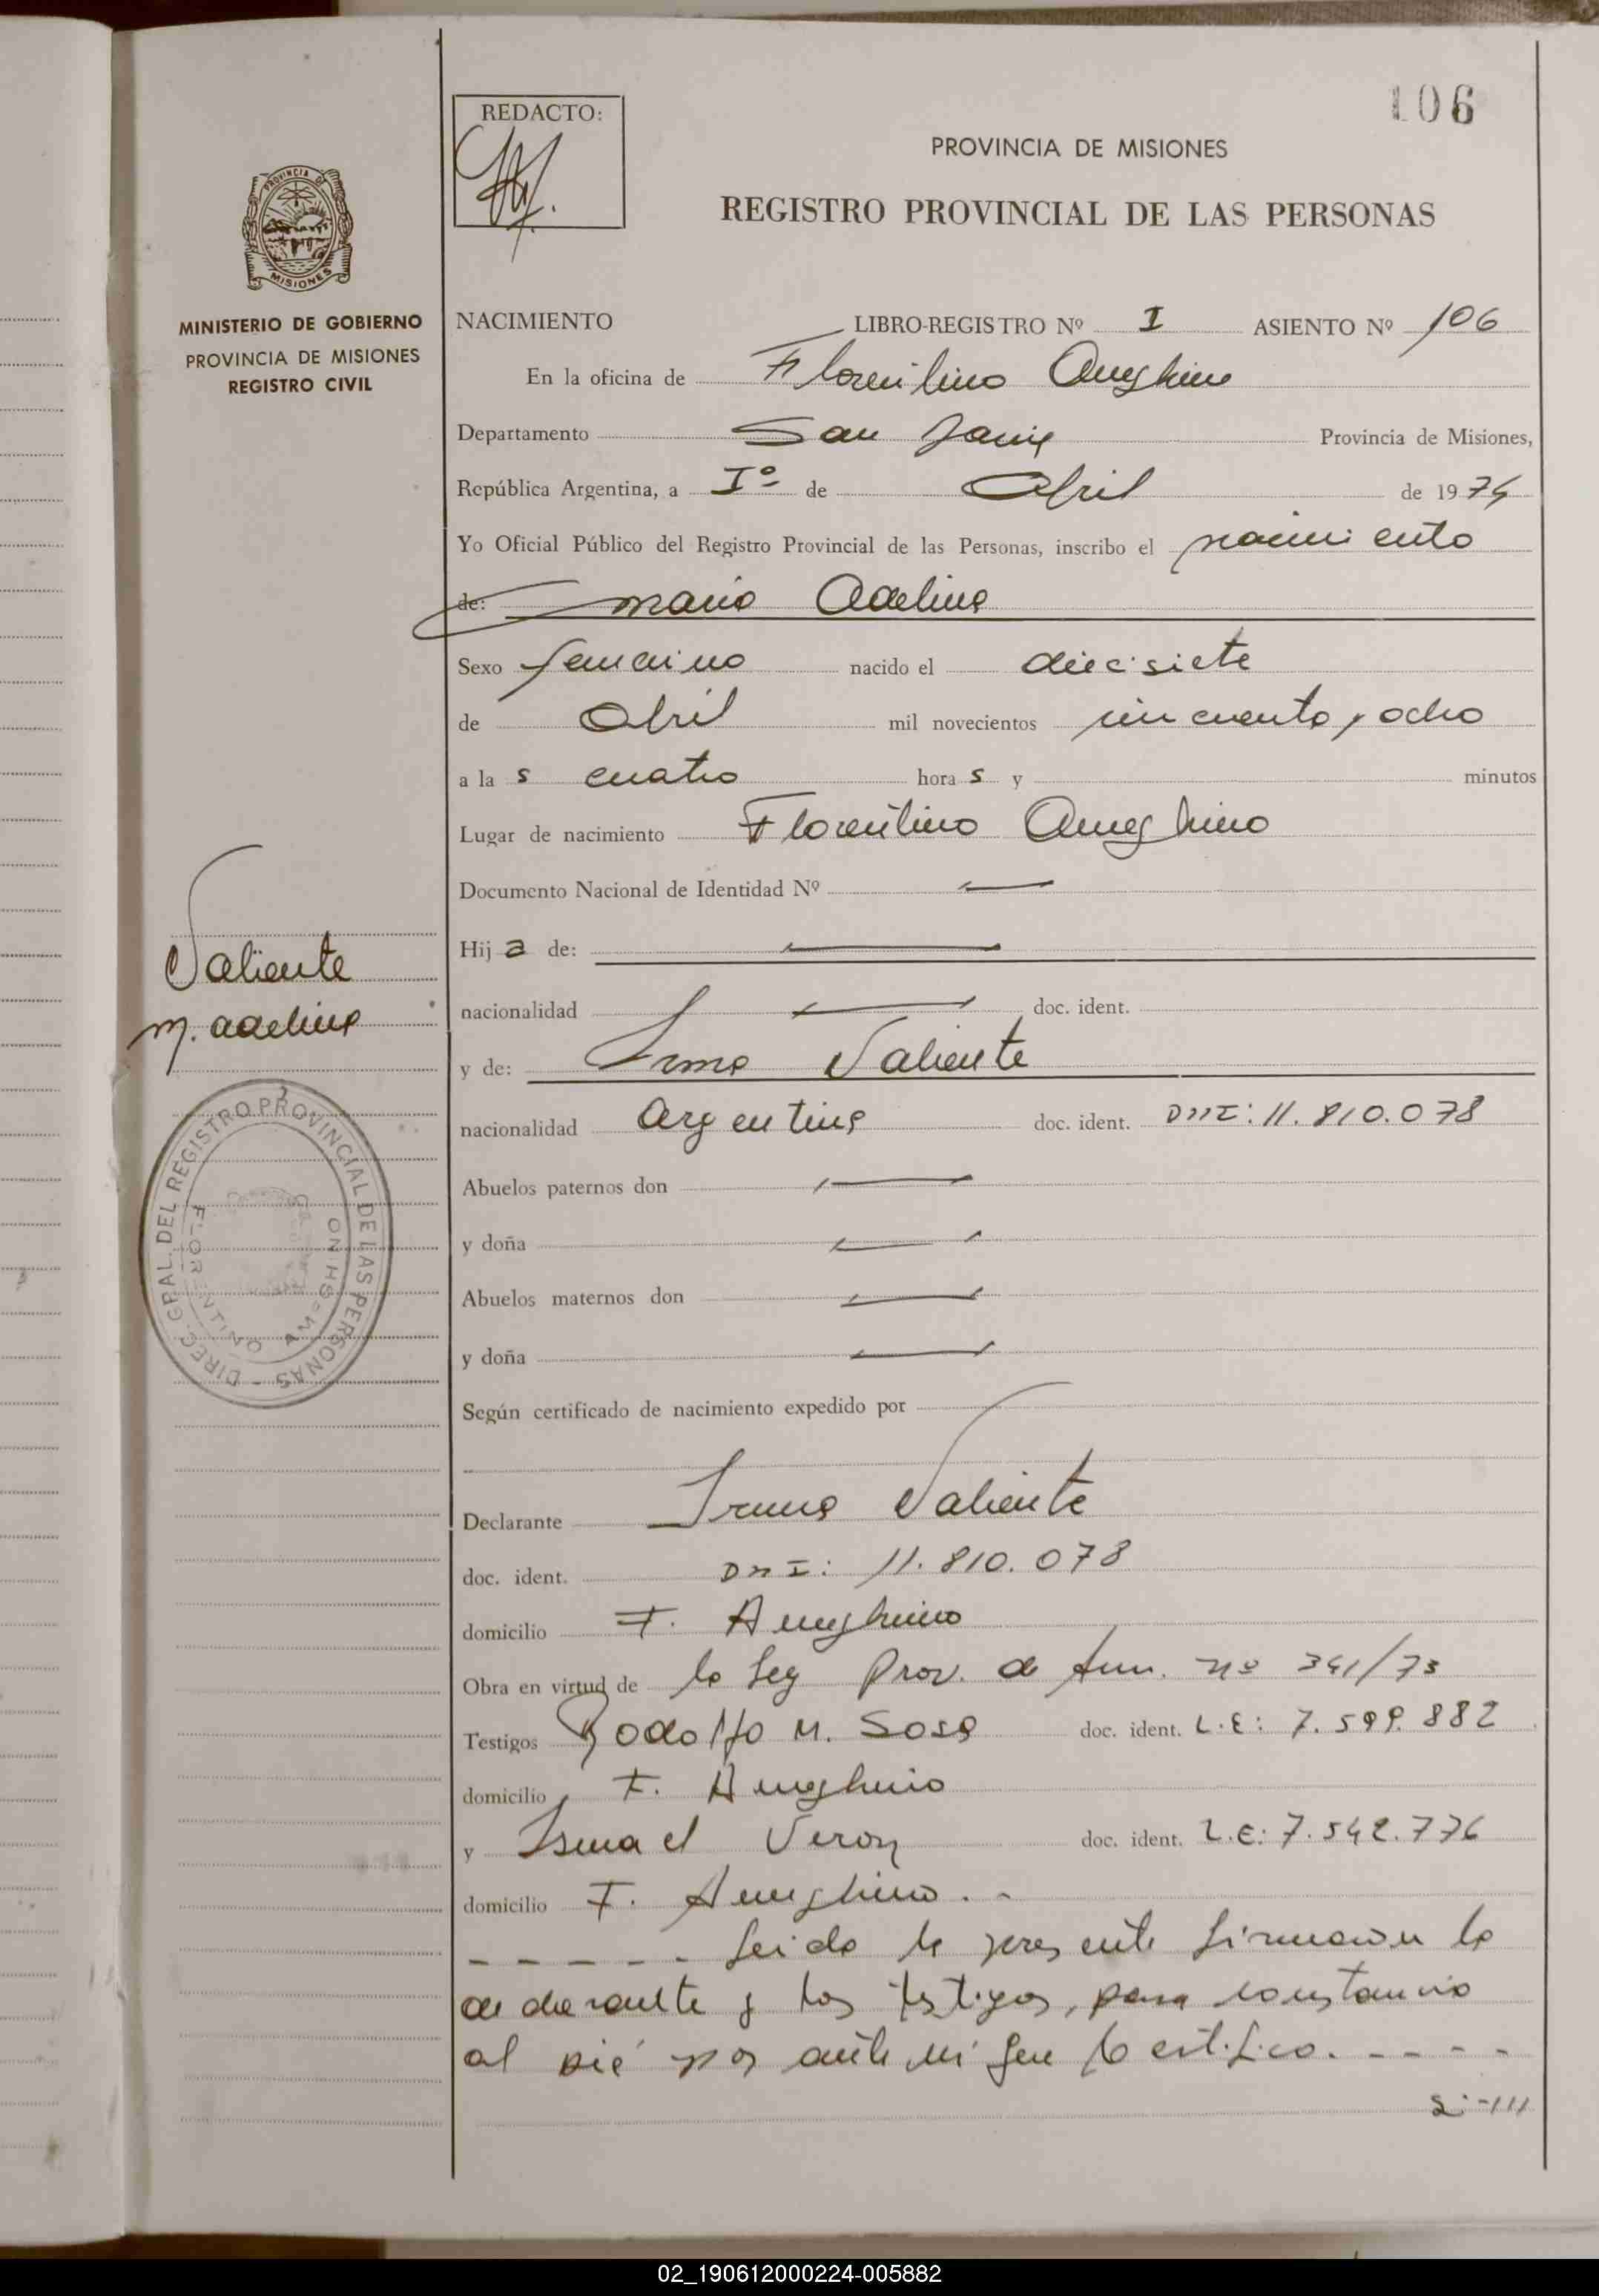 106
REDACTO:
PROVINCIA DE MISIONES
REGISTRO PROVINCIAL DE LAS PERSONAS
PROVINCIA DE MISIONES
MINISTERIO DE GOBIERNO
PROVINCIA DE MISIONES
REGISTRO CIVIL
NACIMIENTO LIBRO-REGISTRO Nº I ASIENTO Nº 106
En la oficina de Florentino Ameghino
Departamento San Javier Provincia de Misiones,
República Argentina, a Iº de Abril de 1974
Yo Oficial Público del Registro Provincial de las Personas, inscribo el nacimiento
de: Maria Adelina
Sexo femenino nacido el diecisiete
de Abril mil novecientos cincuenta y ocho
a la s cuatro hora s y minutos
Lugar de nacimiento Florentino Ameghino
Documento Nacional de Identidad Nº —
Hij a de: —
nacionalidad — doc. ident.
y de: Irma Valiente
nacionalidad Argentina doc. ident. DNI: 11.810.078
Abuelos paternos don —
y doña —
Abuelos maternos don —
y doña —
Según certificado de nacimiento expedido por
Declarante Irma Valiente
doc. ident. DNI: 11.810.078
domicilio F. Ameghino
Obra en virtud de la Ley Prov. de Amn. nº 341/73
Testigos Rodolfo M. Sosa doc. ident. L.E: 7.599.882
domicilio F. Ameghino
y Ismael Veron doc. ident. L.E: 7.542.776
domicilio F. Ameghino. -
- - - - - Leida la presente firmaron la
declarante y los testigos, para constancia
al pié por ante mi que Certifico. - - - -
Valiente
M. Adelina
DIREC. GRAL. DEL REGISTRO PROVINCIAL DE LAS PERSONAS -
FLORENTINO AMEGHINO
02_190612000224-005882